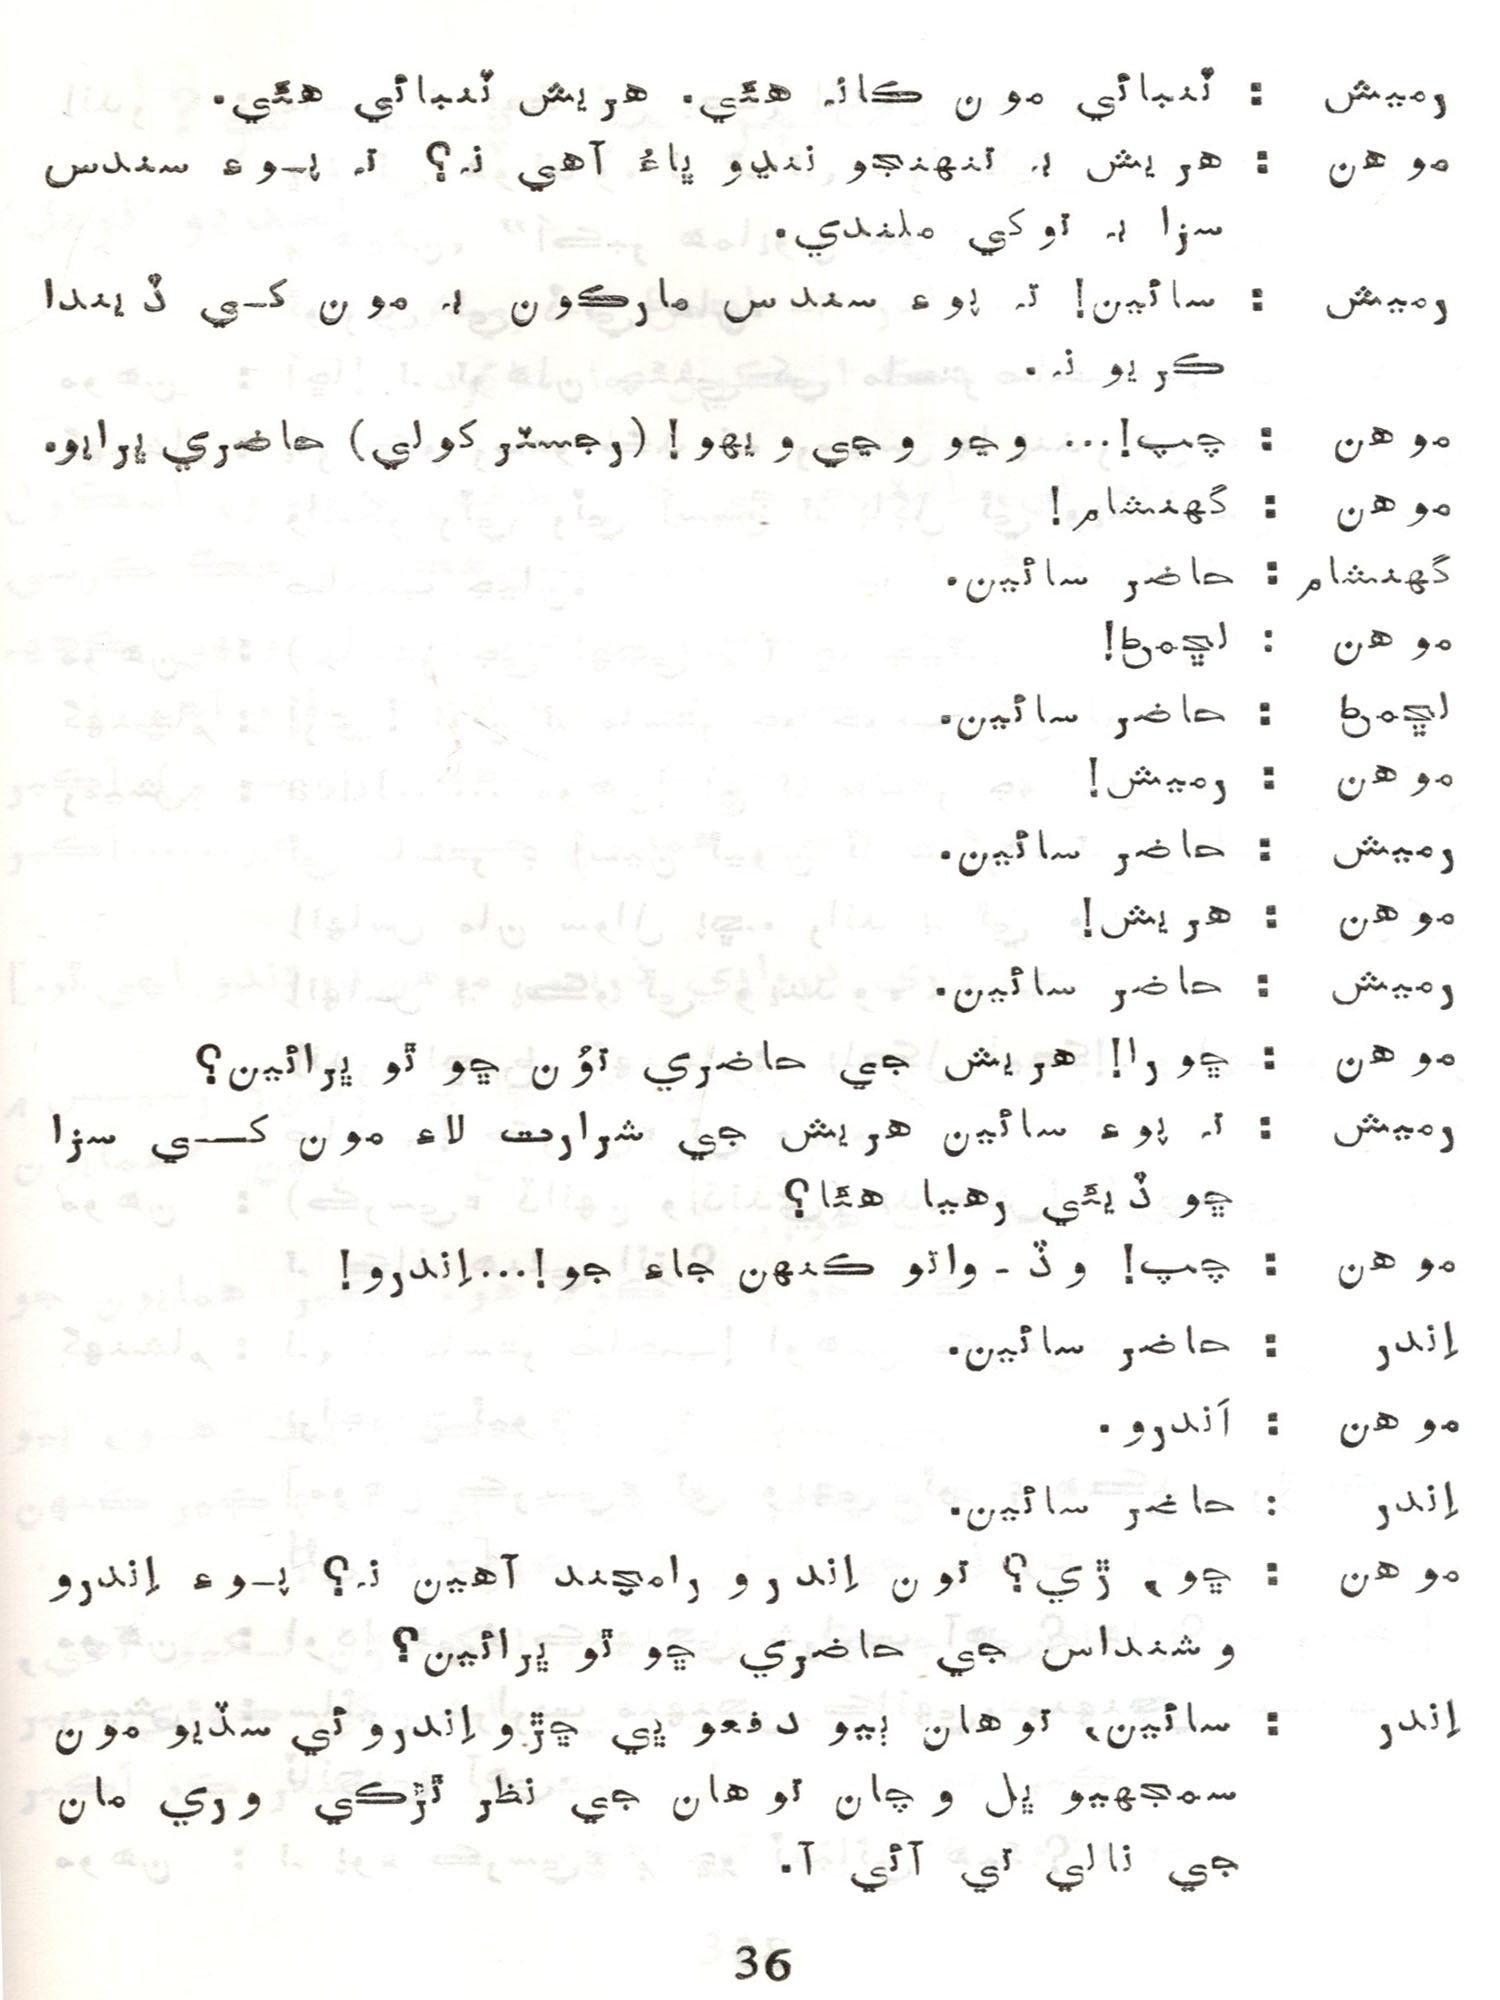 رميش : ٽنبائي مون ڪانہ هئي. هريش ٽنبائي هئي.
موهن : هريش بہ تنهنجو ننڍو ڀاءُ آهي نہ؟ تہ پوءِ سندس
سزا بہ توکي ملندي.
رميش : سائين! تہ پوءِ سندس مارڪون بہ مون کي ڏيندا
ڪريو نہ.
موهن : چپ!... وڃو وڃي ويهو! (رجسٽر کولي) حاضري ڀرايو.
موهن : گهنشام!
گهنشام : حاضر سائين.
موهن : لڇمڻ!
لڇمڻ : حاضر سائين.
موهن : رميش!
رميش : حاضر سائين.
موهن : هريش!
رميش : حاضر سائين.
موهن : ڇورا! هريش جي حاضري تؤُن ڇو ٿو ڀرائين؟
رميش : تہ پوءِ سائين هريش جي شرارت لاءِ مون کي سزا
ڇو ڏيئي رهيا هئا؟
موهن : چپ! وڏ - واتو ڪنهن جاءِ جو!...اِندرو!
اِندر : حاضر سائين.
موهن : اَندرو.
اِندر : حاضر سائين.
موهن : ڇو، ڙي؟ تون اِندرو رامچند آهين نہ؟ پوءِ اِندرو
وشنداس جي حاضري ڇو ٿو ڀرائين؟
اِندر : سائين، توهان ٻيو دفعو ڀي ڇڙو اِندرو ئي سڏيو مون
سمجهيو ڀل وچان توهان جي نظر ٿڙڪي وري مان
جي نالي تي آئي آ.
36